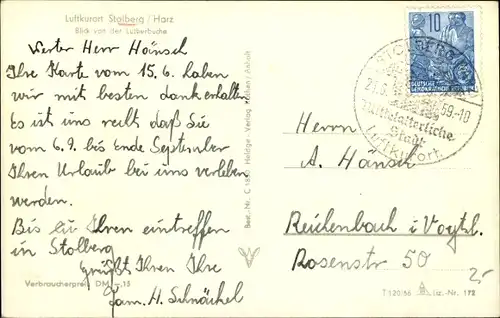 Luftkurort Stolberg / Harz
Blick von der Lutherbuche
Werter Herr Hänsch
Ihre Karte vom 15.6. haben
wir mit besten dank erhalten
Es ist uns recht daß Sie
vom 6.9. bis Ende September
Ihren Urlaub bei uns verleben
werden.
Bis zu Ihren eintreffen
in Stolberg
grüßt Ihnen Ihre
Fam. H. Schnäckel
Verbraucherpreis DM -,15
Best.-Nr. C
Verlag Köthen / Anhalt
10
DEUTSCHE
DEMOKRATISCHE REPUBLIK
STOLBERG
59.-10
Mittelalterliche
Stadt
Luftkurort
Herrn
A. Hänsch
Reichenbach i Vogtl.
Rosenstr 50
T 120/56
Liz.-Nr. 172